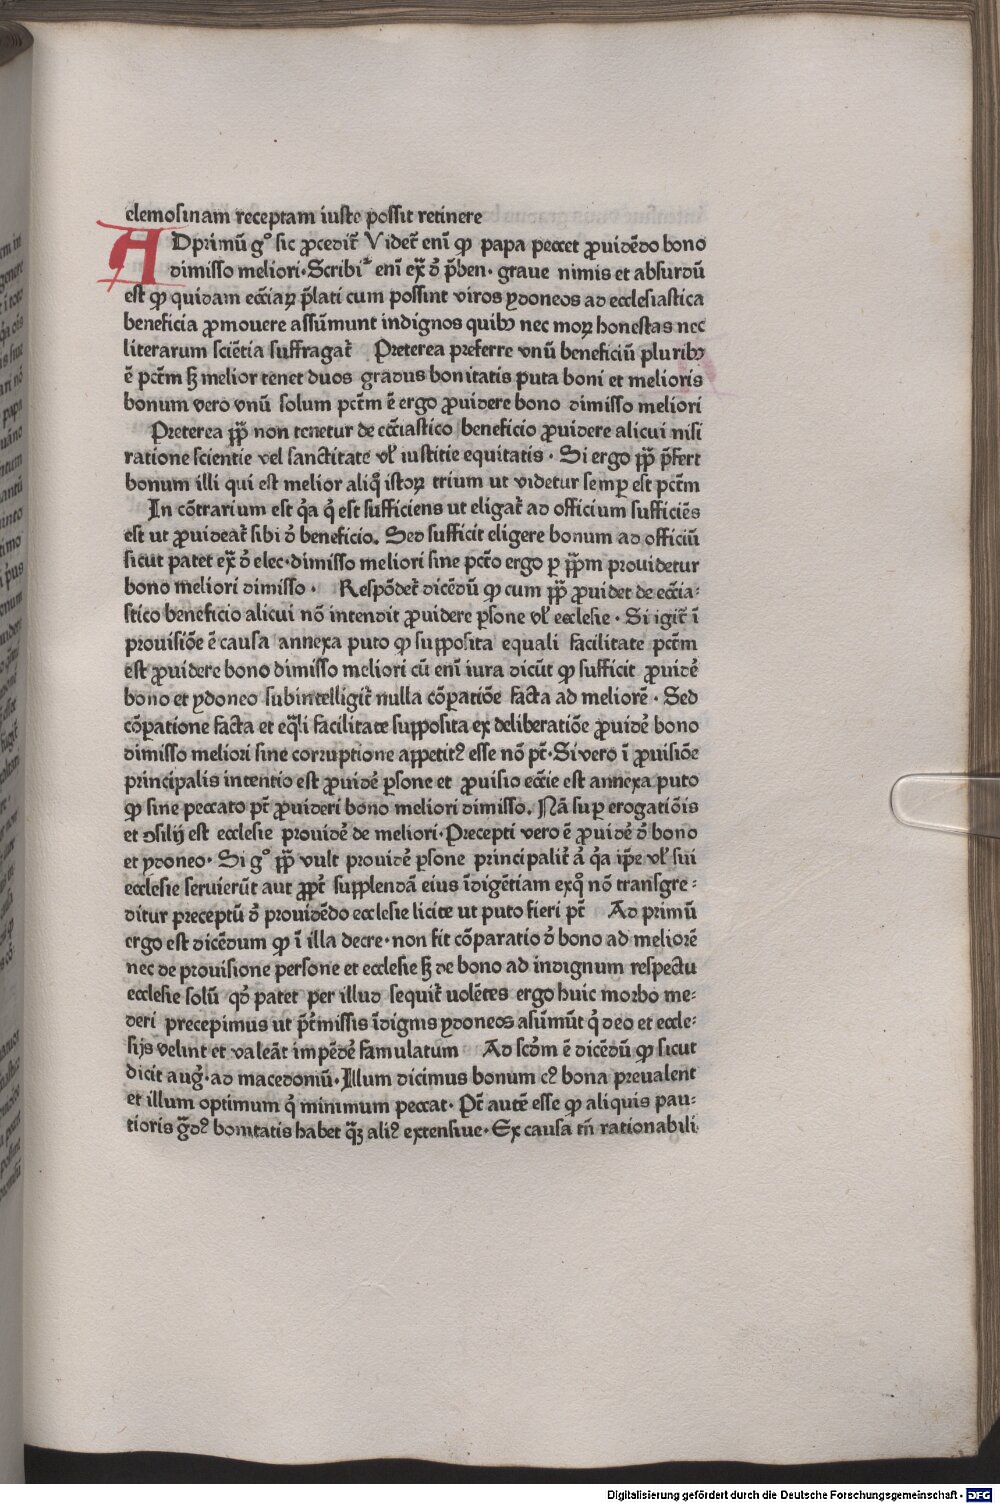 elemosinam receptam iuste possit retinere
AD primū g° sic ꝓcedit᷑ Videt᷑ enī ꝙ papa peccet ꝓuidēdo bono
dimisso meliori · Scribi᷑ enī ex̄ ð p̄ben · graue nimis et absurdū
est ꝙ quidam ecc̄iaꝝ p̄lati cum possint viros ydoneos ad ecclesiastica
beneficia ꝓmouere assūmunt indignos quibꝰ nec moꝝ honestas nec
literarum sciētia suffragat᷑ Preterea preferre vnū beneficiū pluribꝰ
ē pctm̄ sꝫ melior tenet duos gradus bonitatis puta boni et melioris
bonum vero vnū solum pctm̄ ē ergo ꝓuidere bono dimisso meliori
Preterea pp̄ non tenetur de ecc̄iastico beneficio ꝓuidere alicui nisi
ratione scientie vel sanctitate vl̛ iustitie equitatis · Si ergo pp̄ p̄fert
bonum illi qui est melior aliq̄ istoꝝ trium ut videtur semꝑ est pctm̄
In cōtrarium est q̄a q̄ est sufficiens ut eligat᷑ ad officium sufficiēs
est ut ꝓuideat᷑ sibi ð beneficio. Sed sufficit eligere bonum ad officiū
sicut patet ex̄ ð elec · dimisso meliori sine pctō ergo ꝑ pp̄m prouidetur
bono meliori dimisso · Respōdet᷑ dicēdū ꝙ cum pp̄ ꝓuidet de ecc̄ia:
stico beneficio alicui nō intendit ꝓuidere ꝑsone vl̛ ecclesie · Si igit᷑ ī
prouisiōe ē causa annexa puto ꝙ supposita equali facilitate pctm̄
est ꝓuidere bono dimisso meliori cū enī iura dicūt ꝙ sufficit ꝓuidē
bono et ydoneo subintelligit᷑ nulla cōꝑatiōe facta ad meliorē · Sed
cōꝑatione facta et eq̄li facilitate supposita ex deliberatiōe ꝓuidē bono
dimisso meliori sine corruptione appetitꝰ esse nō pt̄ · Si vero ī ꝓuisiōe
principalis intentio est ꝓuidē ꝑsone et ꝓuisio ecc̄ie est annexa puto
ꝙ sine peccato pt̄ ꝓuideri bono meliori dimisso. Nā suꝑ erogatiōis
et ꝯsilij est ecclesie prouidē de meliori · Precepti vero ē ꝓuidē ð bono
et ydoneo · Si g° pp̄ vult prouidē ꝑsone principalit᷑ ā q̄a ip̄e vl̛ sui
ecclesie seruierūt aut ꝓpt᷑ supplendā eius īdigētiam exq̄ nō transgre:
ditur preceptū ð prouidēdo ecclesie licite ut puto fieri pt̄ Ad primū
ergo est dicēdum ꝙ ī illa decre · non fit cōparatio ð bono ad meliorē
nec de prouisione persone et ecclesie sꝫ de bono ad indignum respectu
ecclesie solū qd̄ patet per illud sequit᷑ uolētes ergo huic morbo me:
deri precepimus ut p̄t᷑missis īdignis ydoneos asūmūt q̄ deo et eccle:
sijs velint et valeāt impēdē famulatum Ad scd̄m ē dicēdū ꝙ sicut
dicit auḡ · ad macedoniū · Illum dicimus bonum cꝰ bona preualent
et illum optimum q̄ minimum peccat · Pt̄ autē esse ꝙ aliquis pau:
tioris ḡdꝰ bonitatis habet q̄ꝫ aliꝰ extensiue · Ex causa tn̄ rationabili
Digitalisierung gefördert durch die Deutsche Forschungsgemeinschaft - DFG